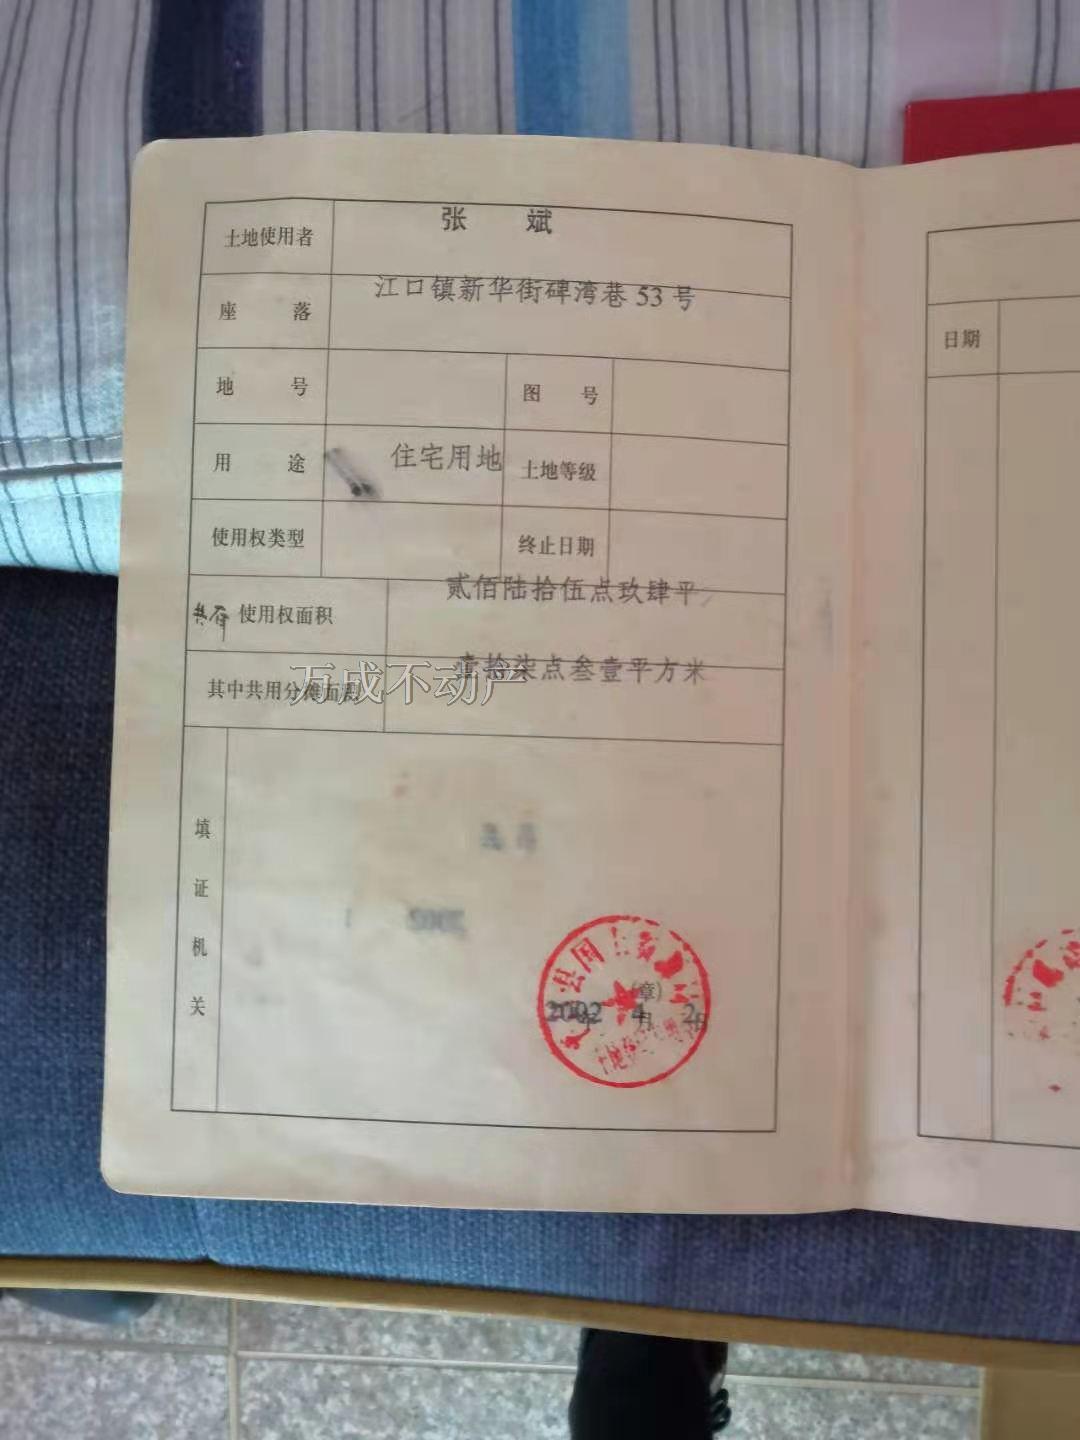 土地使用者 张 斌
座 落 江口镇新华街碑湾巷 53 号
地 号 图 号
用 途 住宅用地 土地等级
使用权类型 终止日期
共有 使用权面积 贰佰陆拾伍点玖肆平
其中共用分摊面积 壹拾柒点叁壹平方米
万成不动产
填证机关
县国土
(章)
2002 年 4 月 2 日
日期